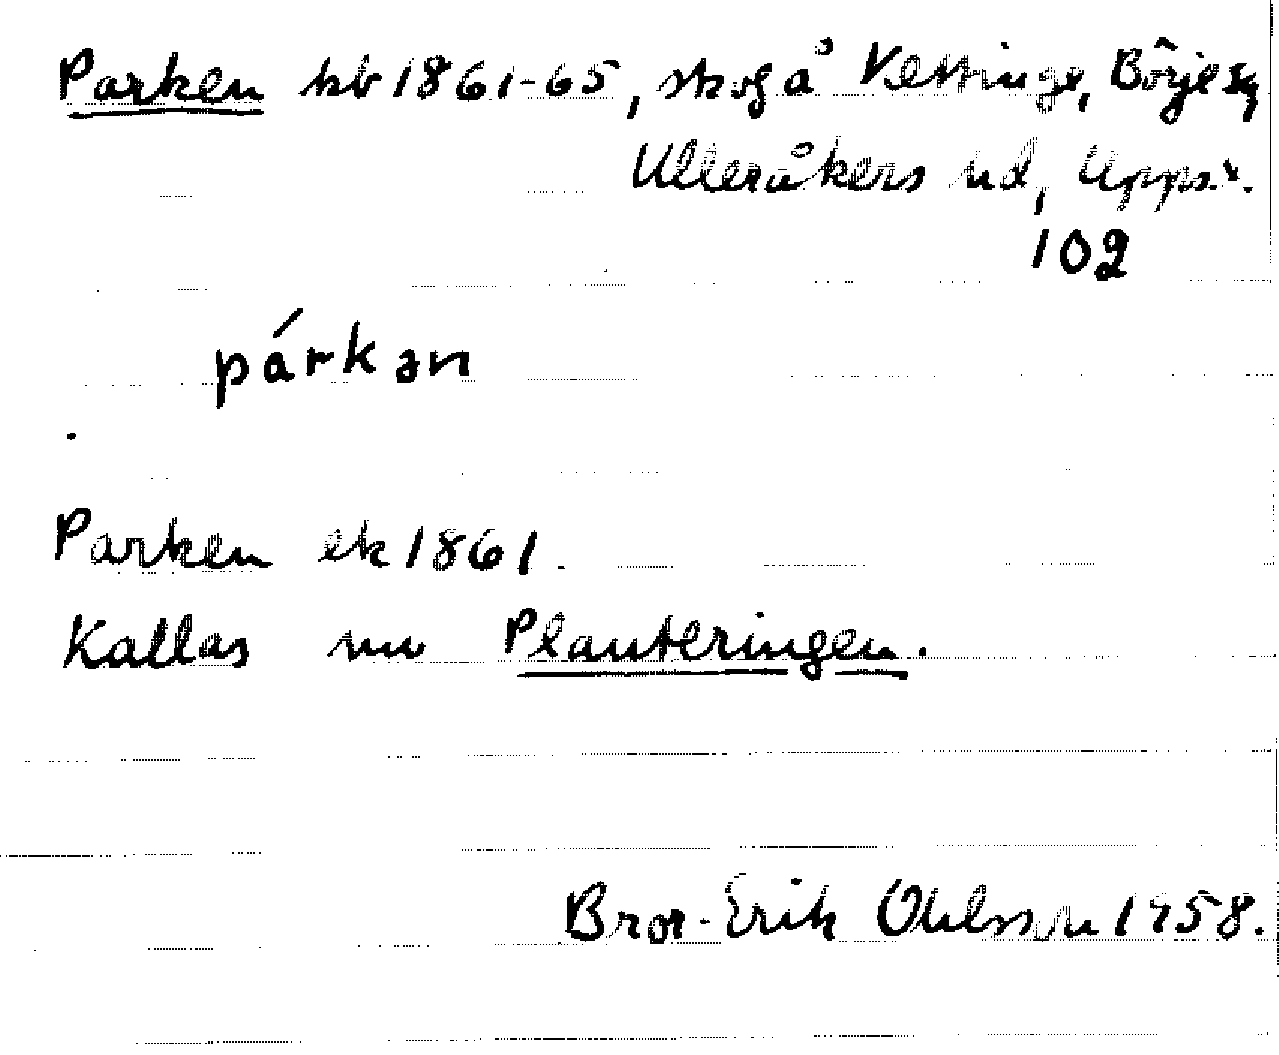 Parken hb 1861-65, skog å Vettinge, Börje sn
Ulleråkers hd, Upps. l.
102
párkən
Parken ek 1861.
Kallas nu Planteringen.
Bror-Erik Ohlsson 1958.